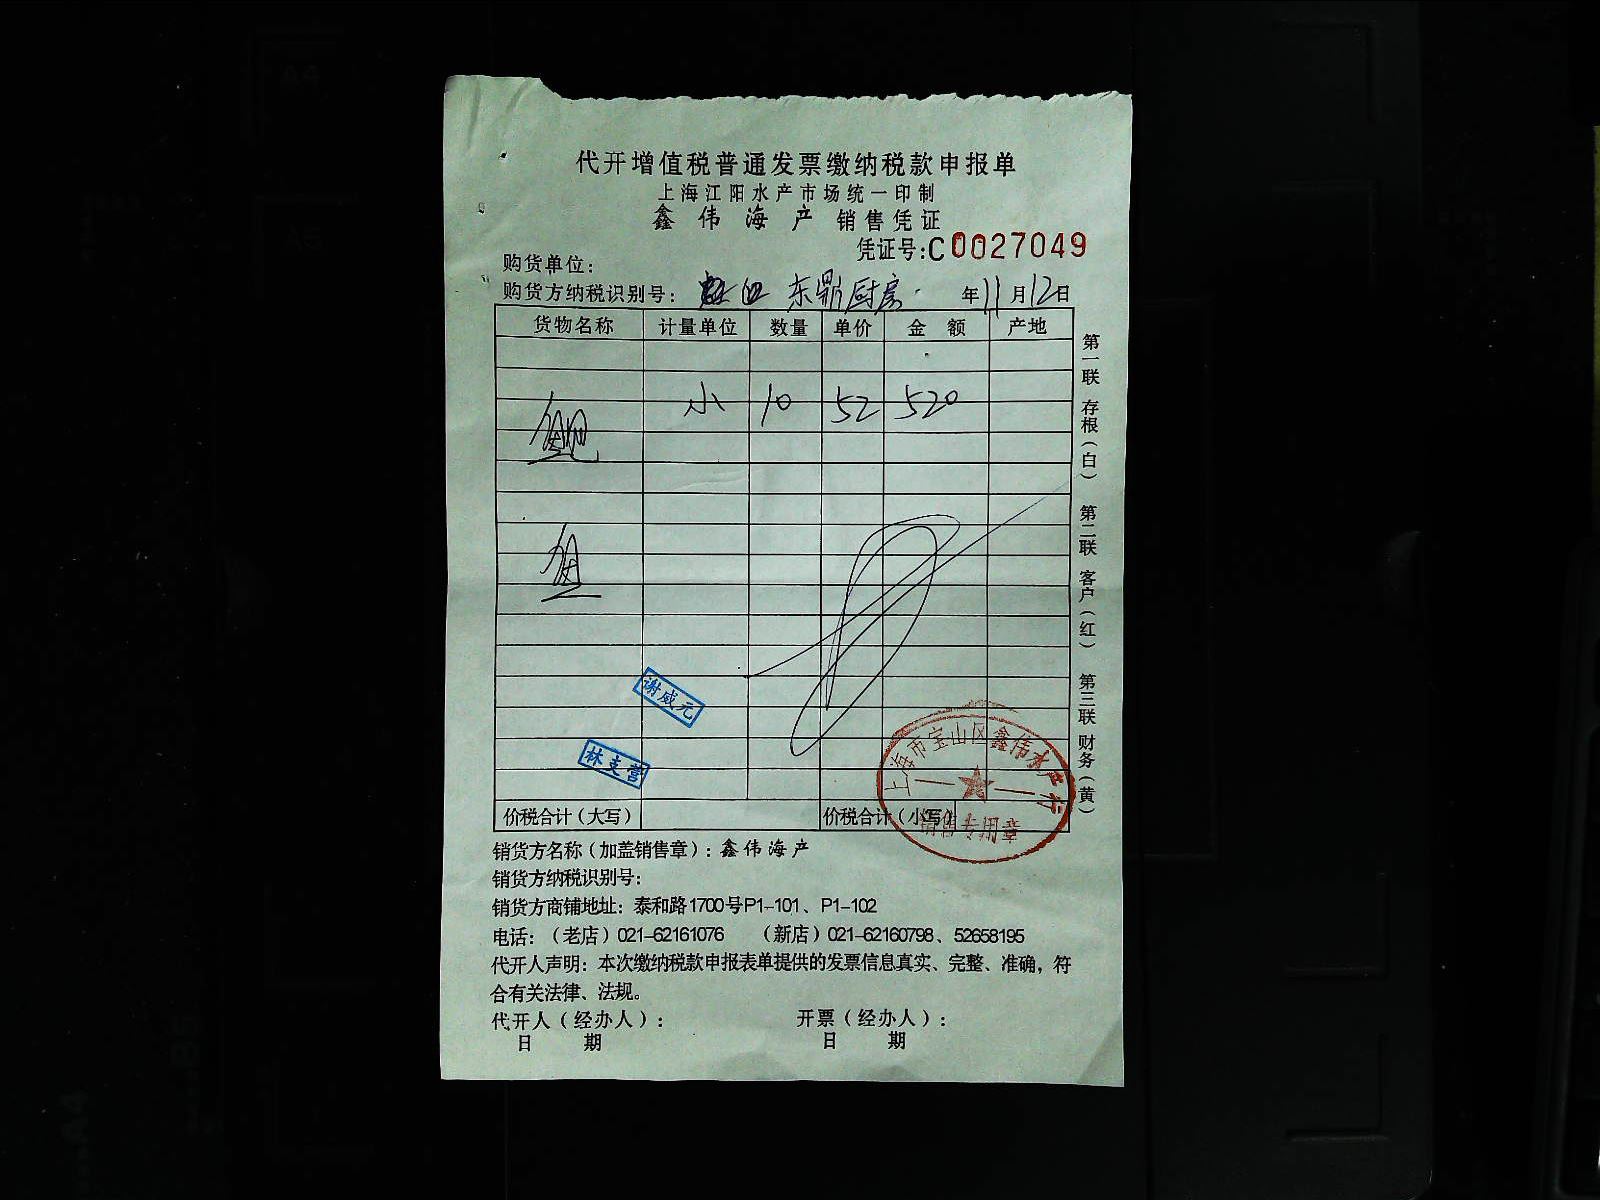 代开增值税普通发票缴纳税款申报单
上海江阳水产市场统一印制
鑫伟海产 销售凭证
凭证号:C0027049
购货单位:
购货方纳税识别号: 东鼎厨房 年11月12日
货物名称 计量单位 数量 单价 金额 产地
小 10 52 520
鲍
鱼
谢威元
林支营
上海市宝山区鑫伟水产行
销售专用章
价税合计(大写) 价税合计(小写)
第一联 存根(白) 第二联 客户(红) 第三联 财务(黄)
销货方名称(加盖销售章):鑫伟海产
销货方纳税识别号:
销货方商铺地址:泰和路1700号P1-101、P1-102
电话:(老店)021-62161076 (新店)021-62160798、52658195
代开人声明:本次缴纳税款申报表单提供的发票信息真实、完整、准确,符
合有关法律、法规。
代开人(经办人): 开票(经办人):
日 期 日 期